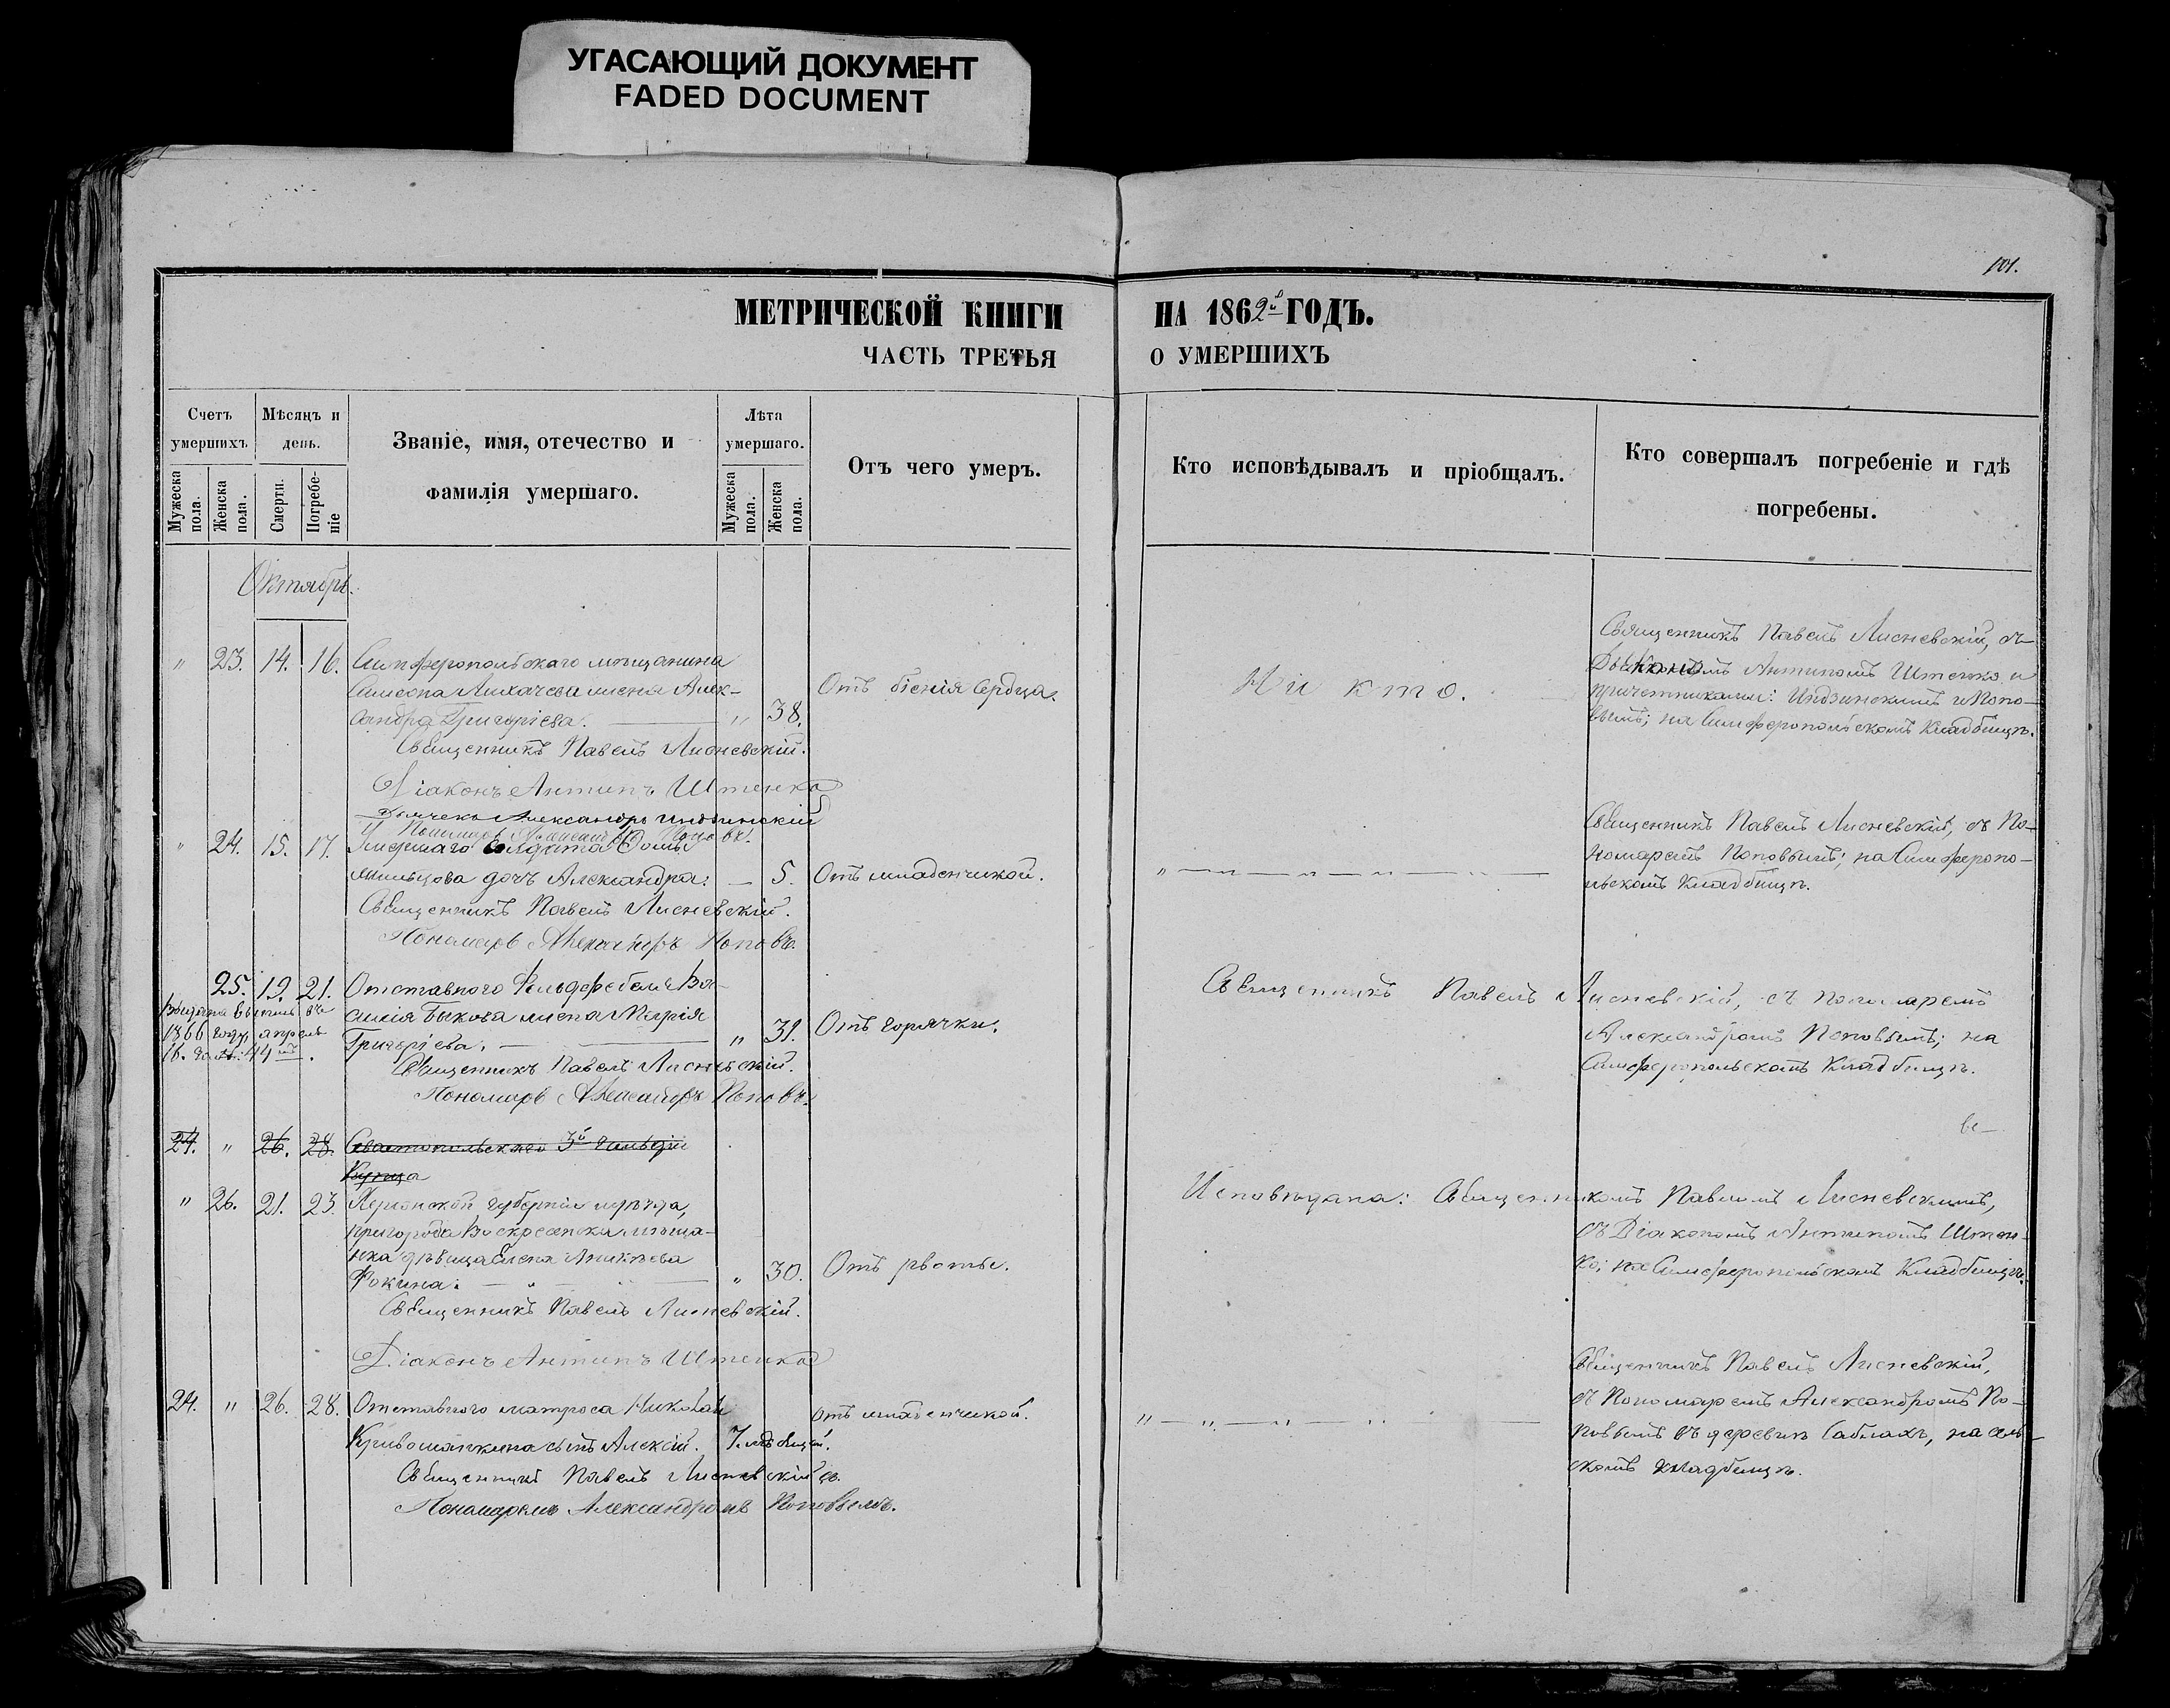 УГАСАЮЩИЙ ДОКУМЕНТ
FADED DOCUMENT
101.
МЕТРИЧЕСКОЙ КНИГИ НА 1862й ГОДЪ.
ЧАСТЬ ТРЕТЬЯ О УМЕРШИХЪ
Счетъ умершихъ.
Мужеска пола.
Женска пола.
Мѣсяцъ и день.
Смерти.
Погребеніе
Званіе, имя, отечество и фамилія умершаго.
Лѣта умершаго.
Мужеска пола.
Женска пола.
Отъ чего умеръ.
Кто исповѣдывалъ и пріобщалъ.
Кто совершалъ погребеніе и гдѣ погребены.
Октябрь.
" 23. 14. 16. Симферопольскаго мѣщанина
Самсона Лихачева жена Алек-
сандра Григоріева. " 38.
Отъ біенія сердца.
Ни кто.
Священникъ Павелъ Лисневскій, съ
Діакономъ Антипомъ Штенко и
причетниками: Индзинскимъ и Попо-
вымъ; на Симферопольскомъ Кладбищѣ.
Священникъ Павелъ Лисневскій.
Діаконъ Антипъ Штенко
Дьячекъ Александръ Индзинскій
Пономарь Александръ Поповъ.
" 24. 15. 17. Умершаго Солдата Фомы
дочь Александра. — 5. Отъ младенческой.
" — " — " — " — "
Священникъ Павелъ Лисневскій, съ По-
номаремъ Поповымъ; на Симферопо-
льскомъ Кладбищѣ.
Священникъ Павелъ Лисневскій.
Пономарь Александръ Поповъ.
25. 19. 21. Отставного Фельдфебеля Ва-
силія Быкова жена Марія
Григоріева. " 31. Отъ горячки.
1866 году, апрѣля
16. 44
Священникъ Павелъ Лисневскій, съ пономаремъ
Александромъ Поповымъ; на
Симферопольскомъ Кладбищѣ.
Священникъ Павелъ Лисневскій.
Пономарь Александръ Поповъ.
24. " 26. 28. Севастопольскаго 3й гильдіи
Купца
" 26. 21. 23. Херсонской губерніи и уѣзда,
пригорода Воскресенска мѣща-
нка дѣвица Елена Аникѣева
Фокина. — " — " — " 30. Отъ рвоты.
Исповѣдана: Священникомъ Павломъ Лисневскимъ,
съ Діакономъ Антипомъ Штен-
ко; на Симферопольскомъ Кладбищѣ.
Священникъ Павелъ Лисневскій.
Діаконъ Антипъ Штенко
24. " 26. 28. Отставного матроса Николая
сынъ Алексій. 7.
отъ младенческой.
" — " — " — "
Священникъ Павелъ Лисневскій,
съ Пономаремъ Александромъ По-
повымъ въ деревнѣ Саблахъ, на сель-
скомъ кладбищѣ.
Священникъ Павелъ Лисневскій съ
Пономаремъ Александромъ Поповымъ.